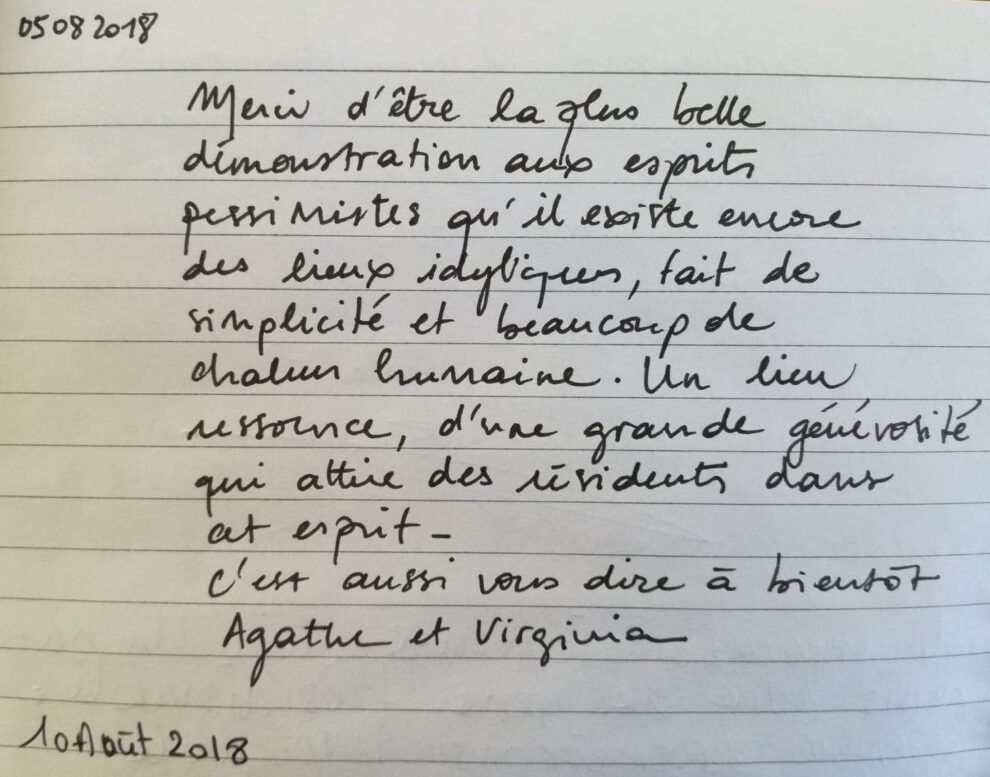 05 08 2018
Merci d'être la plus belle
démonstration aux esprits
pessimistes qu'il existe encore
des lieux idyliques, fait de
simplicité et beaucoup de
chaleur humaine. Un lieu
ressource, d'une grande générosité
qui attire des résidents dans
cet esprit -
C'est aussi vous dire à bientôt
Agathe et Virginia
10 Août 2018